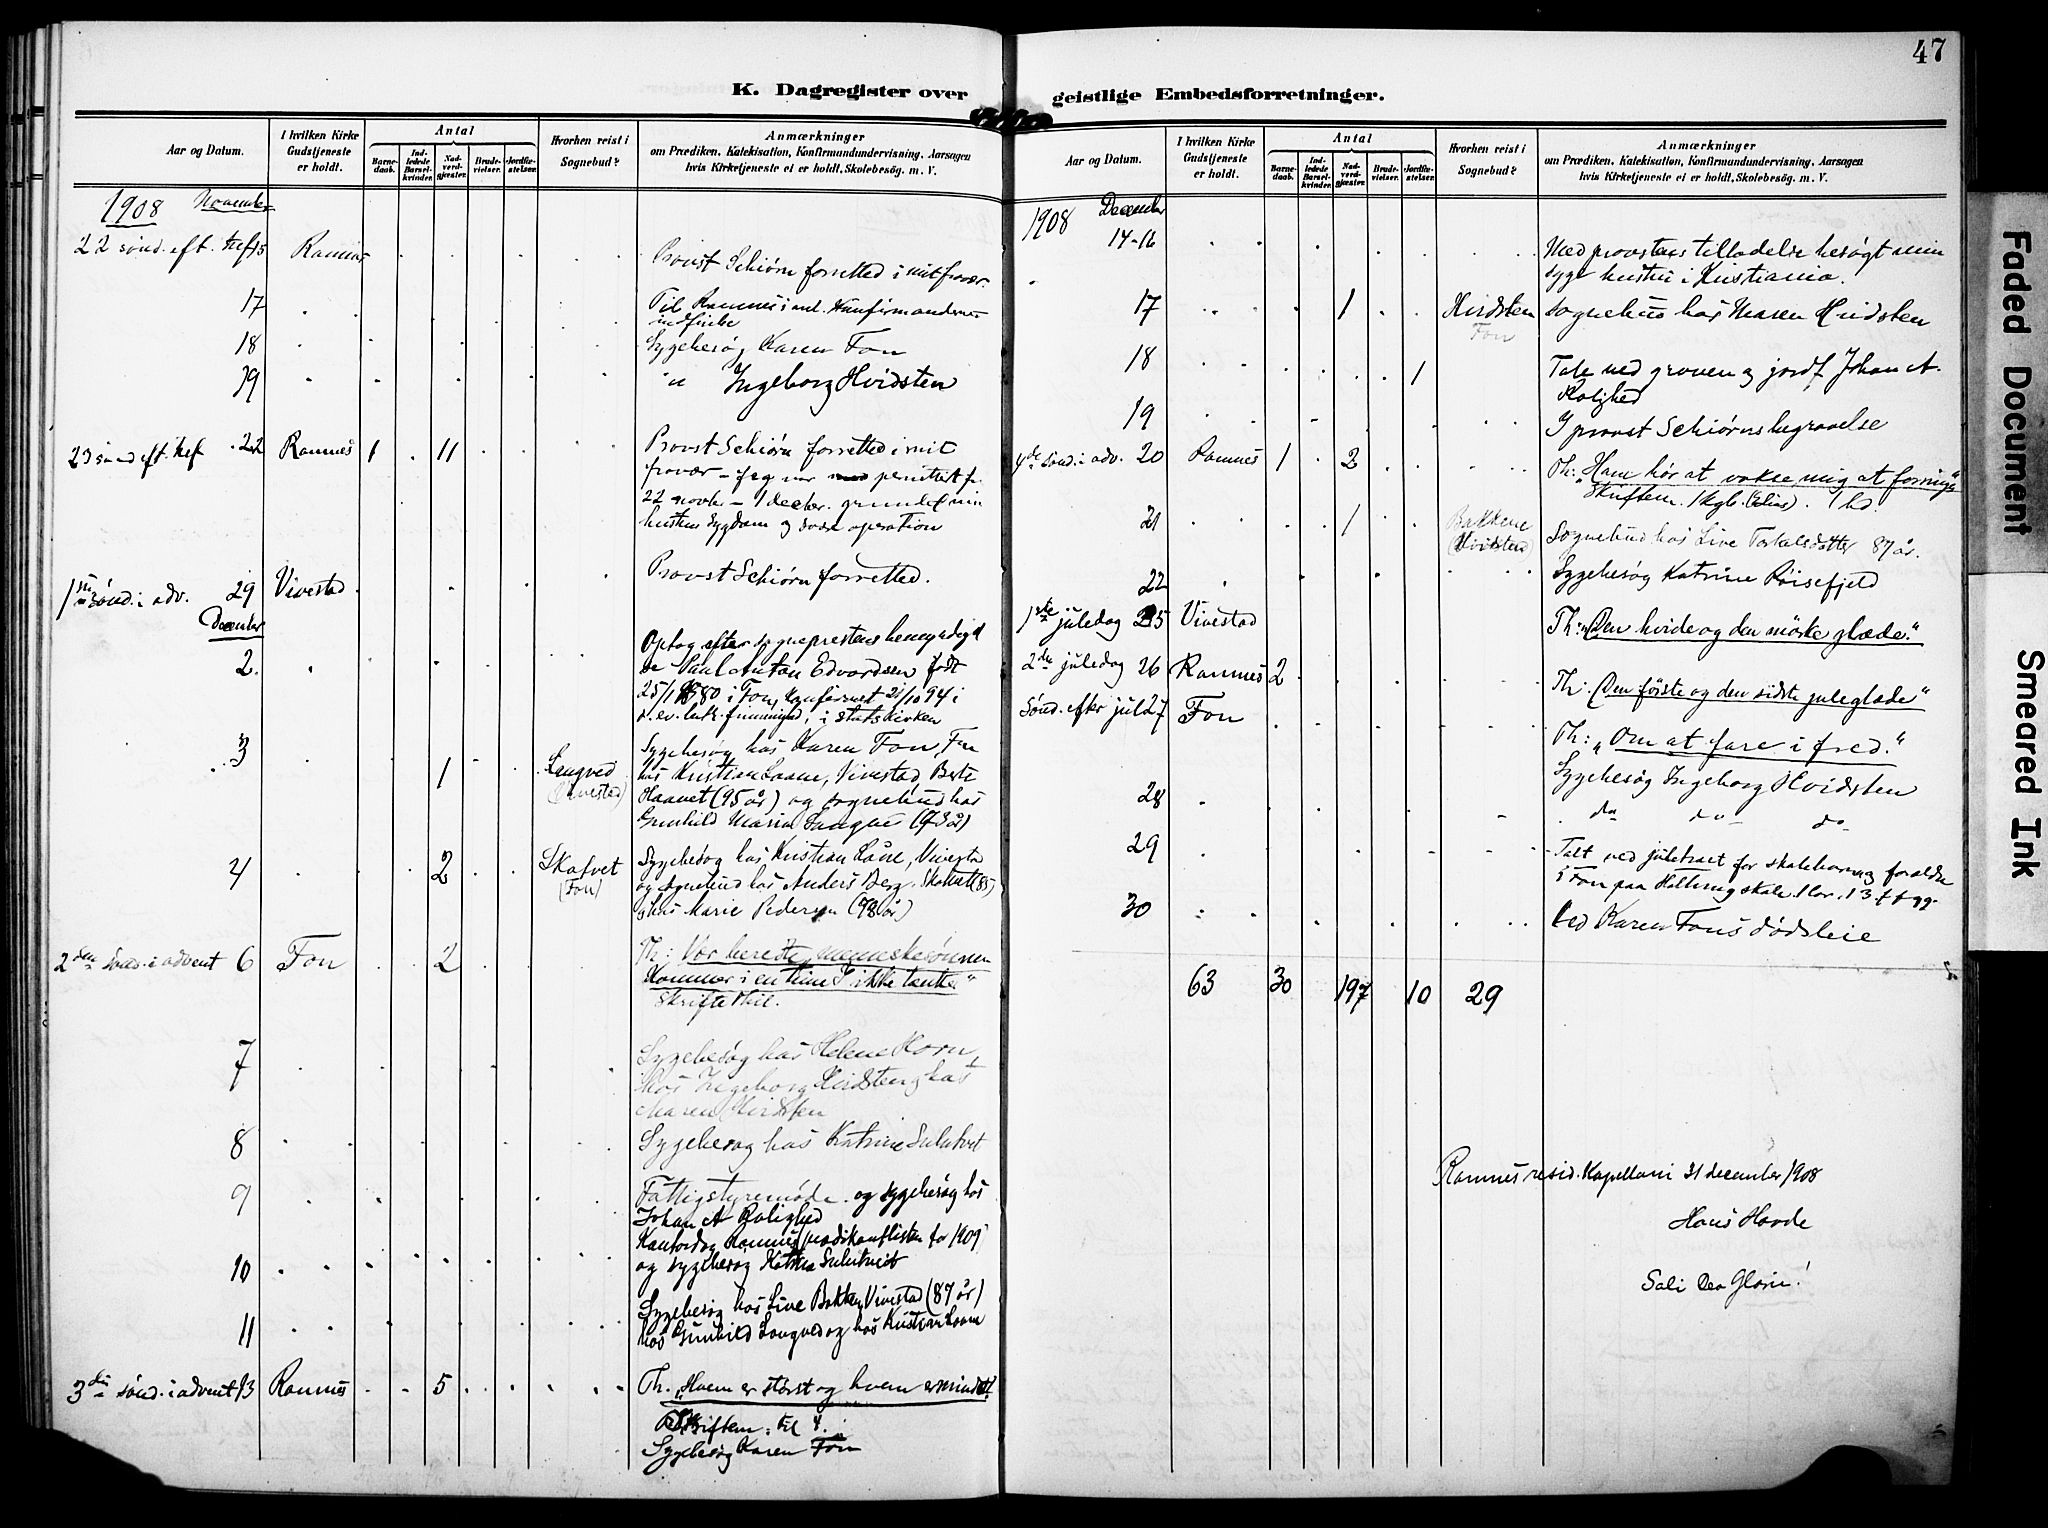 47
K. Dagregister over geistlige Embedsforretninger.
Aar og Datum.
I hvilken Kirke Gudstjeneste er holdt.
Antal
Barne-daab.
Ind-ledede Barsel-kvinder.
Nad-verd-gjester.
Brude-vielser.
Jordfæ-stelser.
Hvorhen reist i Sognebud?
Anmærkninger
om Prædiken, Katekisation, Konfirmandundervisning, Aarsagen
hvis Kirketjeneste ei er holdt, Skolebesøg. m. V.
1908 November
22 sønd. eft. tref 15 Ramnæs Provst Schiørn forretted i mit fravær.
17 Til Ramnes i anl. Konfirmandernes
18 Sygebesøg Karen Fon
19 " Ingeborg Hvidsten
23 sønd eft. tref 22 Ramnes 1 11 Provst Schiørn forretted i mit
fravær - Jeg var permittert fr.
22 novbr - 1 decbr. grundet min
hustrus sygdom og svære operation
1ste sønd. i adv. 29 Vivestad Provst Schiørn forretted.
December
2. Optog efter sogneprestens bemyndigel
se Paul Anton Edvardsen født
25/1 1880 i Fon, konfirmert 21/10 94 i
i statskirken
3 Sygebesøg hos Karen Fon, Fon
1 Langved (Vivestad) hos Kristian Laane, Vivestad, Berte
Haavet (95 år) og sognebud hos
Gunhild Maria Langve (73 år)
4 2 Skatvet (Fon) Sygebesøg hos Kristian Låne, Vivesta
og sognebud hos Anders Berg. Skatvet (85)
og hos Marie Pedersen (78 år)
2den sønd. i advent 6 Fon 2 Th: Vær beredte, menneskesønnen
kommer i en time I ikke tænker"
Skriftet Phil.
7 Sygebesøg hos Helene Horn,
hos Ingeborg Hvidsten og hos
Maren Hvidsten
8 Sygebesøg hos Katrine Sulutvet
9 Fattigstyremøde og sygebesøg hos
Johan A Rolighed
10 Kontordag Ramnes, prædikantlisten for 1909
og sygebesøg Katrine Sulutvet
11 Sygebesøg hos Live Bakken, Vivestad (87 år)
hos Gunhild Langved og hos Kristian Laane
3die sønd. i advent 13 Ramnes 5 Th. "Hvem er størst og hvem er mindst"
Skriften: til 4.
Sygebesøg Karen Fon
Aar og Datum.
I hvilken Kirke Gudstjeneste er holdt.
Antal
Barne-daab.
Ind-ledede Barsel-kvinder.
Nad-verd-gjester.
Brude-vielser.
Jordfæ-stelser.
Hvorhen reist i Sognebud?
Anmærkninger
om Prædiken, Katekisation, Konfirmandundervisning, Aarsagen
hvis Kirketjeneste ei er holdt, Skolebesøg. m. V.
1908 December
14-16 Med provstens tilladelse besøgt min
syge hustru i Kristiania.
17 1 Hvidsten Fon Sognebud hos Maren Hvidsten
18 1 Tale ved graven og jordf. Johan A.
Rolighed
19 I provst Schiørns begravelse
4de sønd. i adv. 20 Ramnes 1 2 Th: "Ham bør at vokse, mig at forringes"
Skriften. 1 kgb. (Elias). 1 hd.
21 1 Bakkene (Hvidsten) Sognebud hos Live Torkelsdatter 87 år.
22 Sygebesøg Katrine Röisefjeld
1ste juledag 25 Vivestad Th: "Den hvide og den mørke glæde."
2den juledag 26 Ramnes 2 Th: "Den første og den sidste juleglæde"
Sønd. efter jul 27 Fon Th: "Om at fare i fred."
Sygebesøg Ingeborg Hvidsten
28 do do do
29 Talt ved juletræet for skolebørn og forældre
i Fon paa Holtung skole
30 Ved Karen Fons dødsleie
63 30 197 10 29
Ramnes resid. Kapellani 31 december 1908
Hans Hovde
Soli Deo Gloria!
Faded Document
Smeared Ink